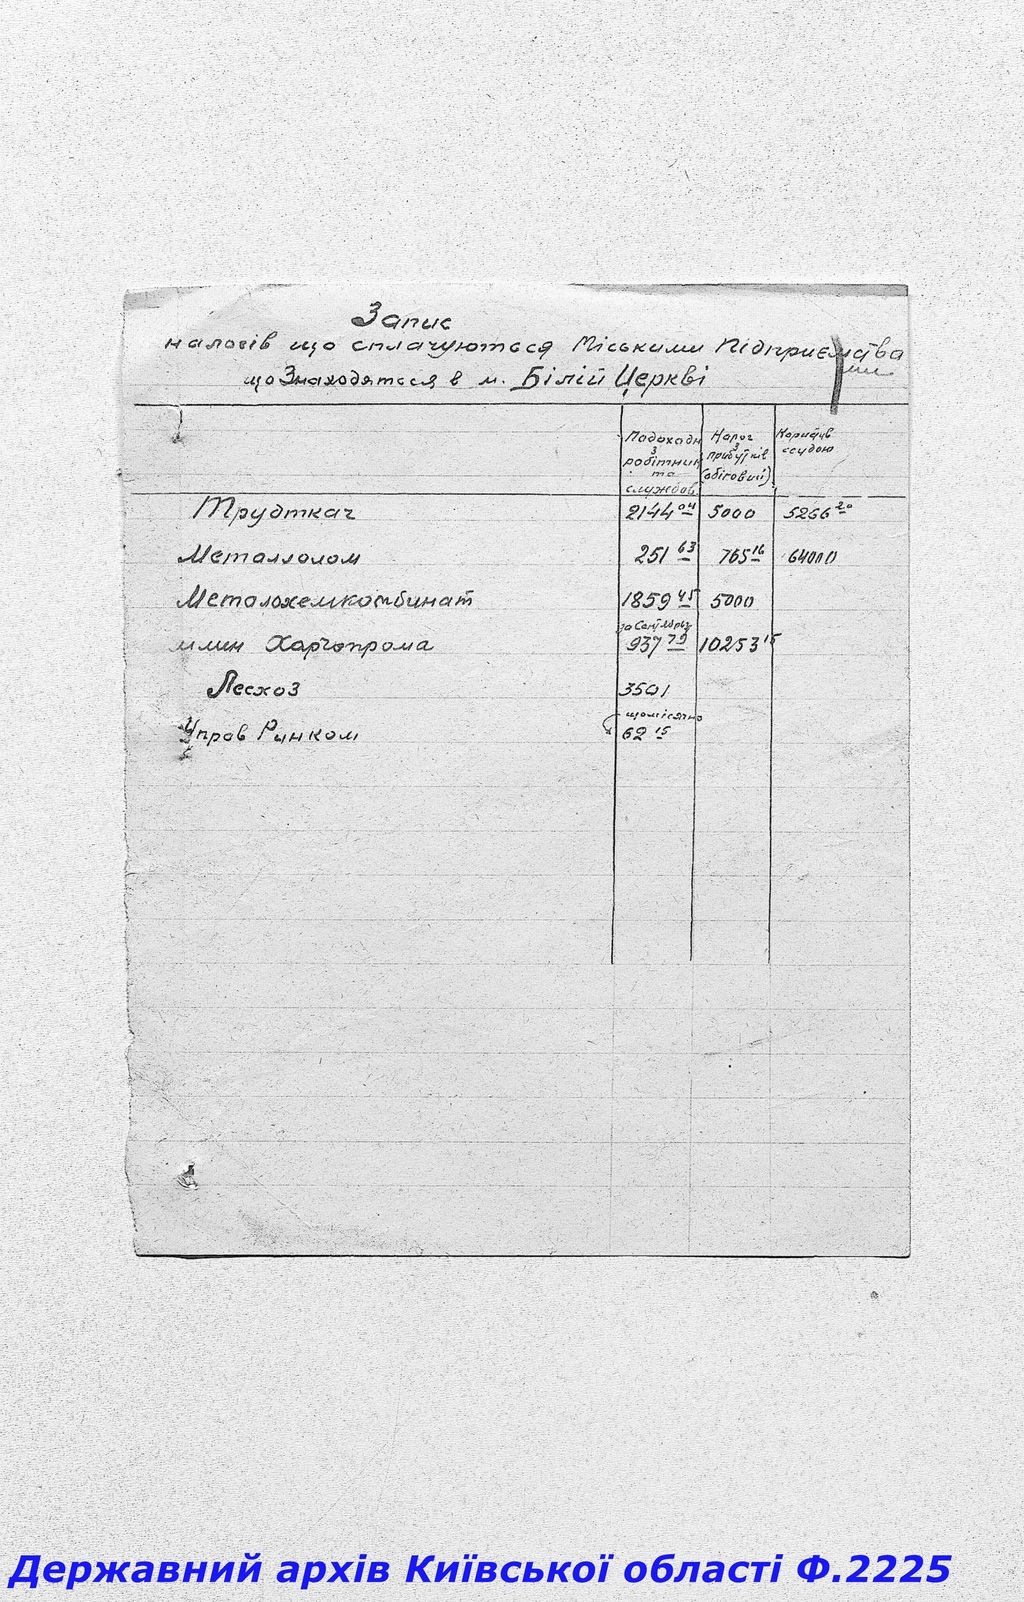 Запис
налогів що сплачуються Міськими Підприємства
ми
що Знаходяться в м. Білій Церкві
Подоходн з робітник та службов.
Налог з прибутків (обіговий)
Користув ссудою
Трудткач 2144 04 5000 5266 20
Металлолом 251 63 765 16 64000
Металохемкомбинат 1859 45 5000
за Сентябрь
млин Харчопрома 937 79 10253 15
Лесхоз 3501
щомісячно
Управ Ринком 62 15
Державний архів Київської області Ф.2225